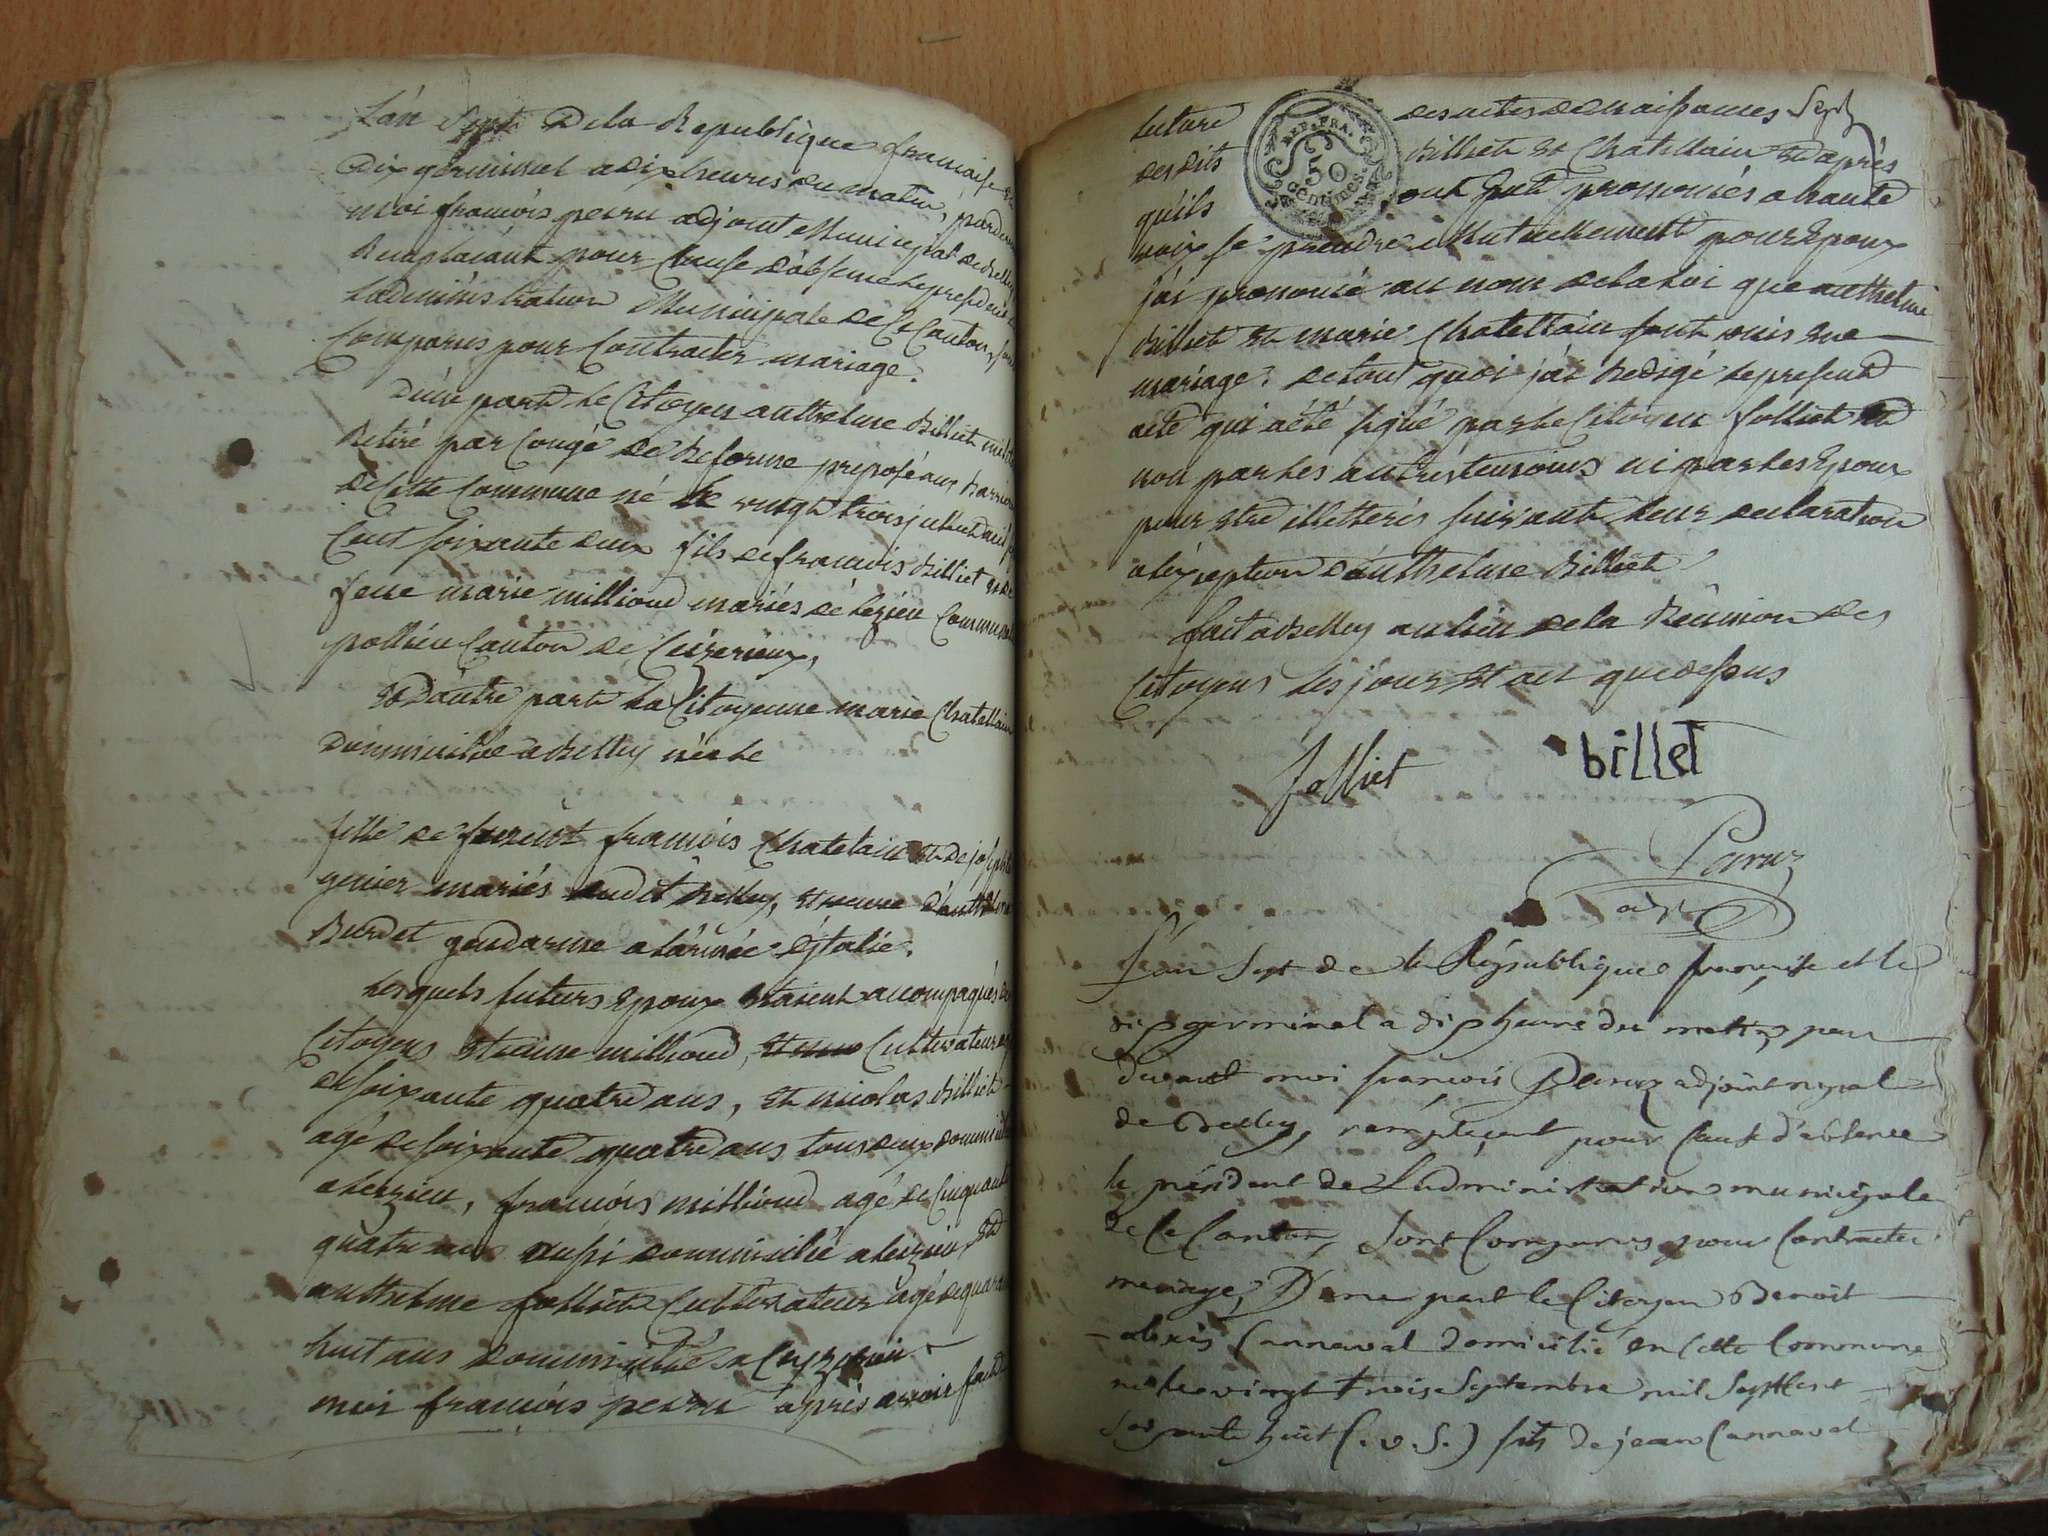 L'an Sept De la Republique francaise
Dix germinal a dix heures du matin, pardevant
moi francois peru adjoint Municipal de belley
Remplacant pour Cause d'absence le president de
Ladministration Municipale de Ce Canton, sont
Comparus pour Contracter mariage.
D'une part le Citoyen anthelme Billiet
Retiré par Congé de Reforme preposé aux barrieres
de Cette Commune né le vingt trois juillet mil sept
Cent soixante deux fils de francois billiet et de
feue marie millioud mariés de Lezieu Commune
pollieu Canton de Ceizerieux,
Et D'autre part La Citoyenne marie Chatellain
Domiciliée a Belley née le
fille de francois Chatelain et de josephte
genier mariés audit belley, et veuve d'anthelme
Burdet gendarme a l'armée d'Italie.
Lesquels futurs Epoux etaient accompagnés des
Citoyens etienne millioud, Cultivateur
de soixante quatre ans, et nicolas Billiet
agé de soixante quatre ans tous deux domiciliés
a Lezieu, francois millioud agé de Cinquante
quatre ans aussi domicilié a Lezieu, et
anthelme folliet Cultivateur agé de quarante
huit ans domicilié a Ceyzerieu
moi francois peru apres avoir fait
lecture des actes de naissances
desdits Billiet et Chatellain et d'après
qu'ils ont eut prononcés a haute
voix se prendre Mutuellement pour Epoux
j'ai prononcé au nom de la loi que anthelme
Billiet et marie Chatellain sont unis en
mariage. de tout quoi j'ai Redigé le present
acte qui a été signé par le Citoyen folliet et
non par les autres temoins ni par les Epoux
pour etre illetterés suivant leur declaration
a l'exception d'anthelme Billiet
fait a Belley au lieu de la Réunion des
Citoyens les jour et an que dessus
folliet billet
Peruz
adjt
REP. FRA.
50
Centimes.
L'an Sept de la République française et le
dix germinal a dix heure du matin, par
devant moi françois Peruz adjoint mpal
de Belley, remplaçant pour Cause d'absence
le président de L'administration municipale
de Ce Canton, Sont Comparus pour Contracter
mariage, D'une part le Citoyen Benoit
alexis Cannaval domicilié en Cette Commune
né le vingt trois Septembre mil Sept Cent
Soixante huit (. v. S.) fils de jean Cannaval